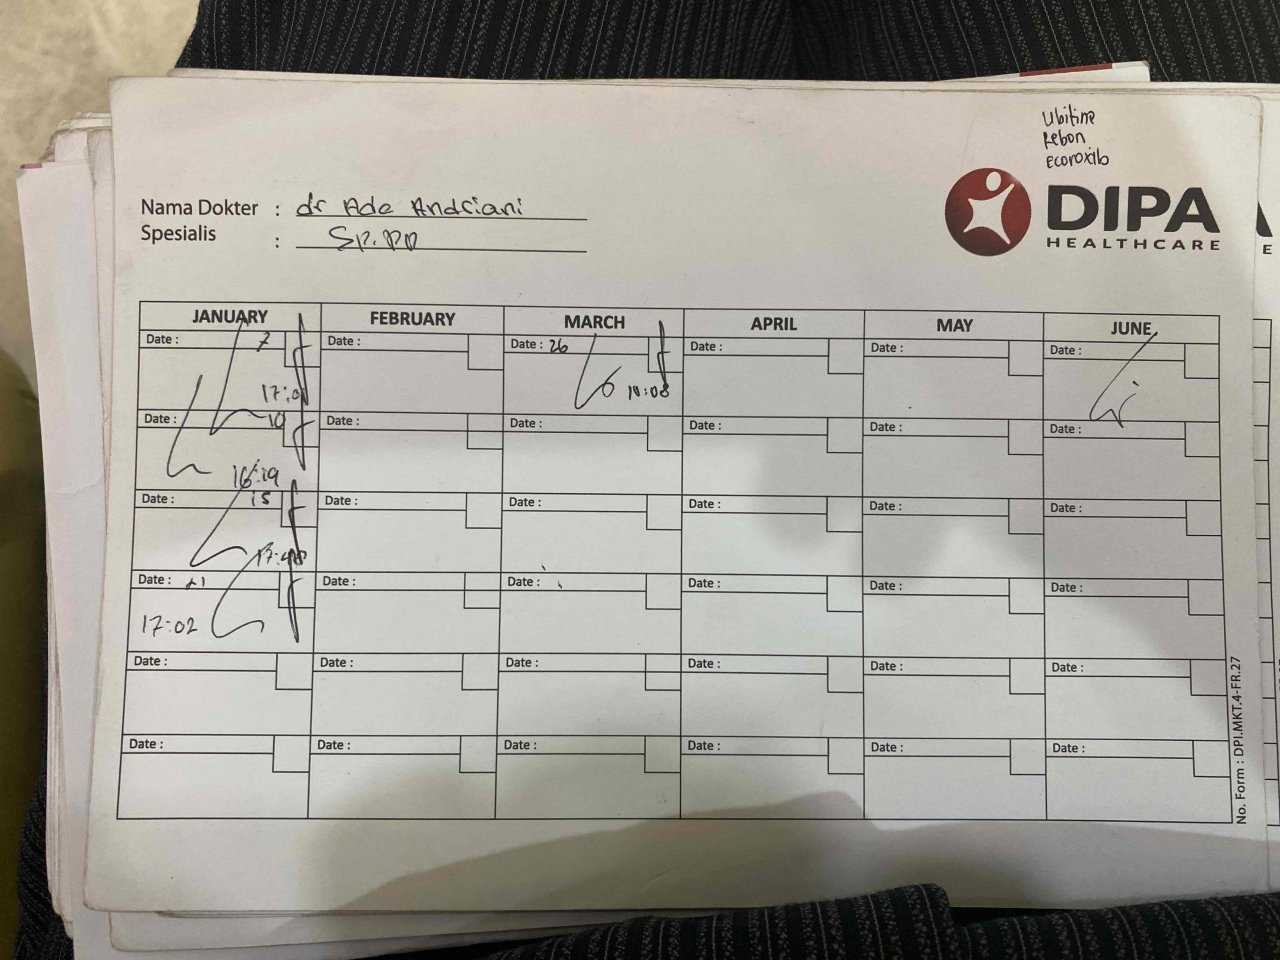 ubitine
Rebon
ecoroxib
DIPA
HEALTHCARE
Nama Dokter : dr Ade Andriani
Spesialis : Sp.PD
JANUARY FEBRUARY MARCH APRIL MAY JUNE
Date : 7 Date : Date : 26 Date : Date : Date :
17:01 10:08
Date : 10 Date : Date : Date : Date : Date :
16:19
Date : 15 Date : Date : Date : Date : Date :
Date : 21 Date : Date : Date : Date : Date :
17:02
Date : Date : Date : Date : Date : Date :
Date : Date : Date : Date : Date : Date :
No. Form : DPI.MKT.4-FR.27